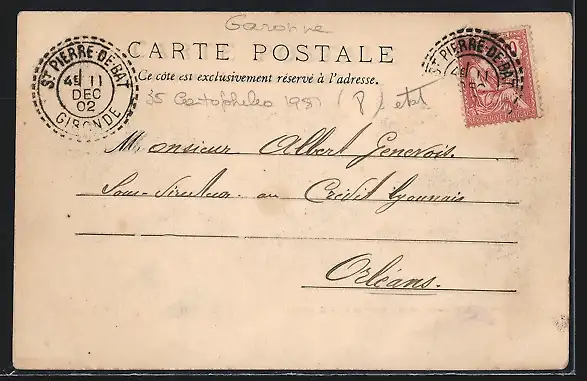 Garonne
CARTE POSTALE
Ce côté est exclusivement réservé à l'adresse.
ST PIERRE-DE-BAT
4E 11
DEC
02
GIRONDE
ST PIERRE-DE-BAT
4E 11
35 Cartophileo 1981 (P) etat
Monsieur Albert Genevois.
Sous-directeur au Crédit Lyonnais
Orléans.